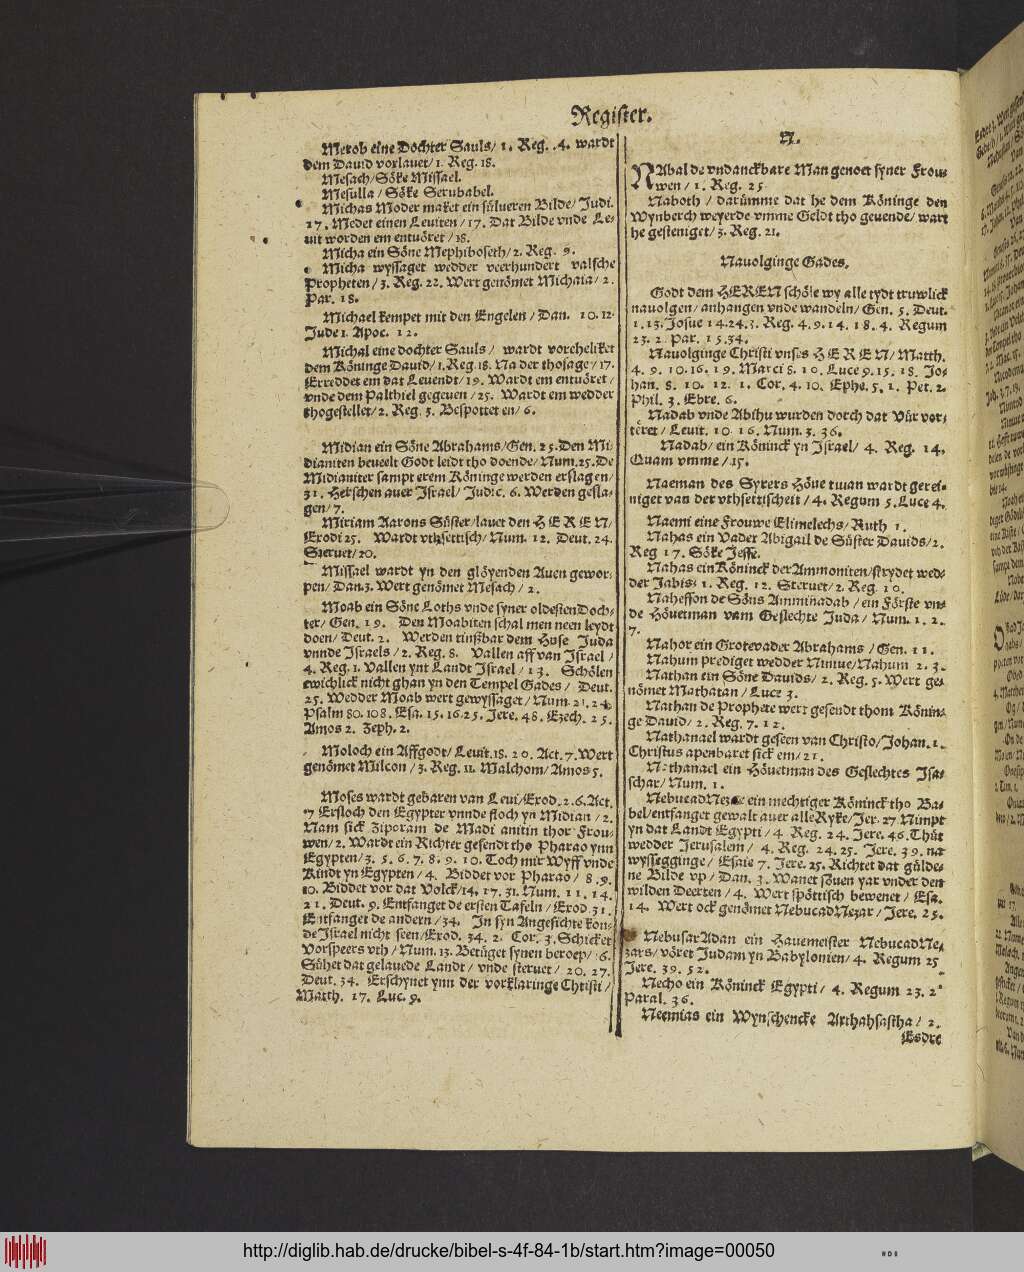 Register.
Merob eine Dochter Sauls/ 1. Reg. .4. wardt
dem Dauid vorlauet/ 1. Reg. 18.
Mesach/ Söke Missael.
Mesulla / Söke Serubabel.
Michas Moder maket ein sülueren Bilde/ Judi.
17. Medet einen Leuiten / 17. Dat Bilde vnde Le-
uit worden em entuöret / 18.
Micha ein Söne Mephiboseth/ 2. Reg. 9.
Micha wyssaget wedder veerhundert valsche
Propheten / 3. Reg. 22. Wert genömet Michaia/ 2.
Par. 18.
Michael kempet mit den Engelen / Dan. 10. 12.
Jude 1. Apoc. 12.
Michal eine dochter Sauls / wardt voreheliket
dem Köninge Dauid/ 1. Reg. 18. Na der thosage / 17.
Erreddet em dat Leuendt / 19. Wardt em entuöret /
vnde dem Palthiel gegeuen / 25. Wardt em wedder
thogestellet/ 2. Reg. 3. Bespottet en/ 6.
Midian ein Söne Abrahams/ Gen. 25. Den Mi-
dianiten beueelt Godt leidt tho doende/ Num. 25. De
Midianiter sampt erem Köninge werden erslagen/
31. Herschen auer Israel/ Judic. 6. Werden gesla-
gen/ 7.
Miriam Aarons Süster/ lauet den HEREN/
Exodi 25. Wardt vthsettisch/ Num. 12. Deut. 24.
Steruet/ 20.
Missael wardt yn den glöyenden Auen gewor-
pen/ Dan. 3. Wert genömet Mesach / 2.
Moab ein Söne Loths vnde syner oldesten Doch-
ter/ Gen. 19. Den Moabiten schal men neen leydt
doen/ Deut. 2. Werden tinßbar dem Huse Juda
vnnde Israels / 2. Reg. 8. Vallen aff van Israel /
4. Reg. 1. Vallen ynt Landt Israel / 13. Schölen
ewichlick nicht ghan yn den Tempel Gades / Deut.
25. Wedder Moab wert gewyssaget/ Num. 21. 24.
Psalm 80. 108. Esa. 15. 16. 25. Jere. 48. Ezech. 25.
Amos 2. Zeph. 2.
Moloch ein Affgodt/ Leuit. 18. 20. Act. 7. Wert
genömet Milcon / 3. Reg. 11. Malchom/ Amos 5.
Moses wardt gebaren van Leui/ Exod. 2. 6. Act.
7 Ersloch den Egypter vnnde floch yn Midian / 2.
Nam sick Ziporam de Madi anitin thor Frou-
wen/ 2. Wardt ein Richter gesendt tho Pharao ynn
Egypten/ 3. 5. 6. 7. 8. 9. 10. Toch mit Wyff vnde
Kindt yn Egypten / 4. Biddet vor Pharao / 8. 9.
10. Biddet vor dat Volck/ 14. 17. 31. Num. 11. 14.
21. Deut. 9. Entfanget de ersten Tafeln / Exod 31.
Entfanget de andern / 34. In syn Angesichte kon-
de Israel nicht seen/ Exod. 34. 2. Cor. 3. Schicket
Vorspeers vth / Num. 13. Betüget synen beroep/ 16.
Sühet dat gelauede Landt / vnde steruet / 20. 27.
Deut. 34. Erschynet ynn der vorklaringe Christi /
Matth. 17. Luc. 9.
N.
NAbal de vndanckbare Man genoet syner Frou-
wen / 1. Reg. 25
Naboth / darümme dat he dem Köninge den
Wynberch weyerde vmme Geldt tho geuende/ wart
he gesteniget/ 3. Reg. 21.
Nauolginge Gades.
Godt dem HEREN schöle wy alle tydt truwlick
nauolgen / anhangen vnde wandeln/ Gen. 5. Deut.
1. 13. Josue 14. 24. 3. Reg. 4. 9. 14. 18. 4. Regum
23. 2. Par. 15. 34.
Nauolginge Christi vnses HEREN/ Matth.
4. 9. 10. 16. 19. Marci 8. 10. Luce 9. 15. 18. Jo-
han. 8. 10. 12. 1. Cor. 4. 10. Ephe. 5. 1. Pet. 2.
Phil. 3. Ebre. 6.
Nadab vnde Abihu wurden dorch dat Vür vor-
teret / Leuit. 10. 16. Num. 3. 36.
Nadab/ ein Köninck yn Israel/ 4. Reg. 14.
Quam vmme / 15.
Naeman des Syrers Höuetman wardt gerei-
niget van der vthsettischeit / 4. Regum 5. Luce 4.
Naemi eine Frouwe Elimelechs/ Ruth 1.
Nahas ein Vader Abigail de Süster Dauids/ 2.
Reg 17. Söke Jesse.
Nahas ein Köninck der Ammoniten/ strydet wed-
der Jabis/ 1. Reg. 12. Steruet/ 2. Reg. 10.
Nahesson de Söns Amminadab / ein Förste vn-
de Höuetman vam Geslechte Juda / Num. 1. 2.
7.
Nahor ein Grotevader Abrahams / Gen. 11.
Nahum prediget wedder Niniue/ Nahum 2. 3.
Nathan ein Söne Dauids/ 2. Reg. 5. Wert ge-
nömet Mathatan / Luce 3.
Nathan de Prophete wert gesendt thom Könin-
ge Dauid/ 2. Reg. 7. 12.
Nathanael wardt geseen van Christo/ Johan. 1.
Christus apenbaret sick em/ 21.
Nathanael ein Höuetman des Geslechtes Isa-
schar/ Num. 1.
NebucadNezar ein mechtiger Köninck tho Ba-
bel/ entfanget gewalt auer alle Ryke/ Jer. 27 Nimpt
yn dat Landt Egypti / 4. Reg. 24. Jere. 46. Thüt
wedder Jerusalem / 4. Reg. 24. 25. Jere. 39. na
wyssegginge / Esaie 7. Jere. 25. Richtet dat gülde-
ne Bilde vp / Dan. 3. Wanet söuen yar vnder den
wilden Deerten / 4. Wert spöttisch bewenet / Esa.
14. Wert ock genömet NebucadNezar / Jere. 25.
NebusarAdan ein Hauemeister NebucadNe-
zars/ vöret Judam yn Babylonien/ 4. Regum 25
Jere. 39. 52.
Necho ein Köninck Egypti / 4. Regum 23. 2
Paral. 36.
Neemias ein Wynschencke Arthahsastha / 2.
Esdre
http://diglib.hab.de/drucke/bibel-s-4f-84-1b/start.htm?image=00050